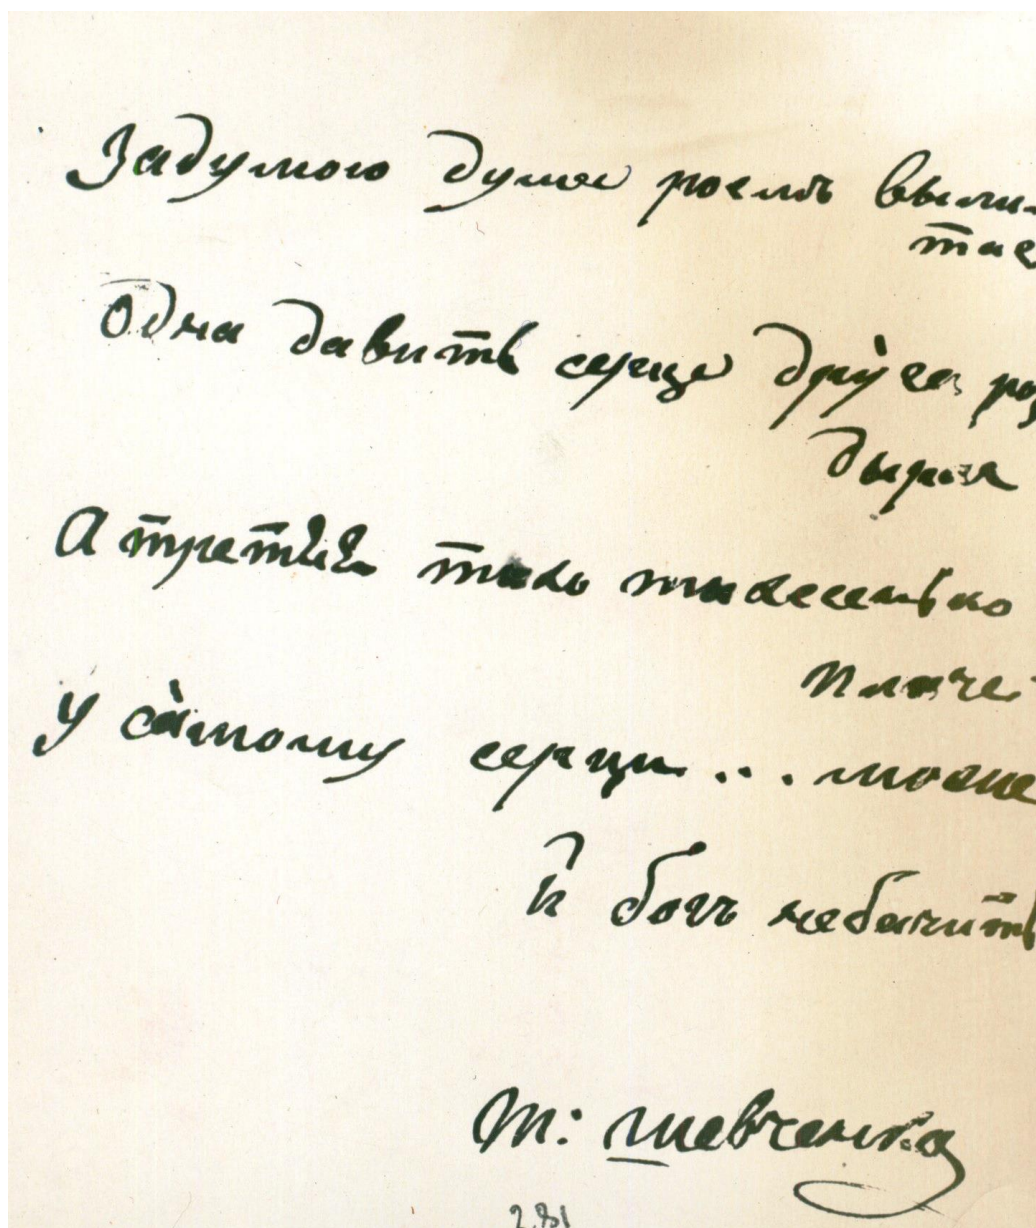 Задумою дума роемъ выли-
тае
Одна давить серце друга роз
дырае
А третяя тихо тихесенько
плаче
У самому серци... може
й богъ небачить
Т: Шевченко
281